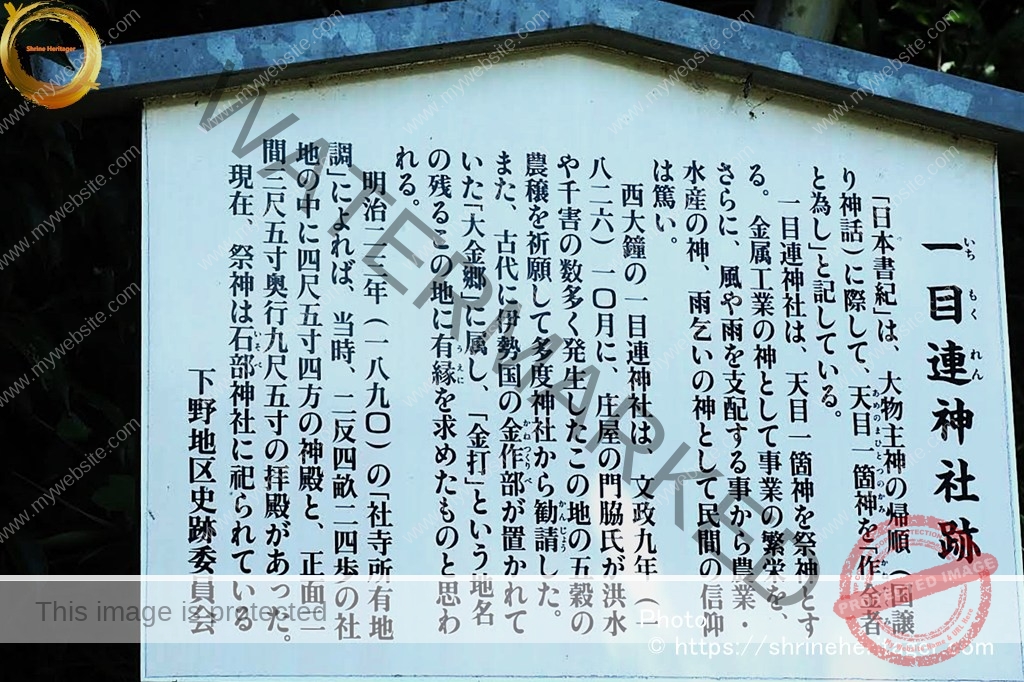 一目連神社跡
いち もく れん
「日本書紀」は、大物主神の帰順(国譲
り神話)に際して、天目一箇神を「作金者
あめのまひとつのかみ
と為し」と記している。
一目連神社は、天目一箇神を祭神とす
る。金属工業の神として事業の繁栄を、
さらに、風や雨を支配する事から農業・
水産の神、雨乞いの神として民間の信仰
は篤い。
西大鐘の一目連神社は、文政九年(一
八二六)一〇月に、庄屋の門脇氏が洪水
や干害の数多く発生したこの地の五穀の
農穣を祈願して多度神社から勧請した。
かんじょう
また、古代に伊勢国の金作部が置かれて
かねつくりべ
いた「大金郷」に属し、「金打」という地名
の残るこの地に有縁を求めたものと思わ
うえに
れる。
明治二三年(一八九〇)の「社寺所有地
調」によれば、当時、二反四畝二四歩の社
地の中に四尺五寸四方の神殿と、正面二
間二尺五寸奥行九尺五寸の拝殿があった。
現在、祭神は石部神社に祀られている
いそべ
下野地区史跡委員会
Shrine Heritager
WATERMARKED
www.mywebsite.com
This image is protected
Photo
© https://shrineheritager.com
PROTECTED IMAGE